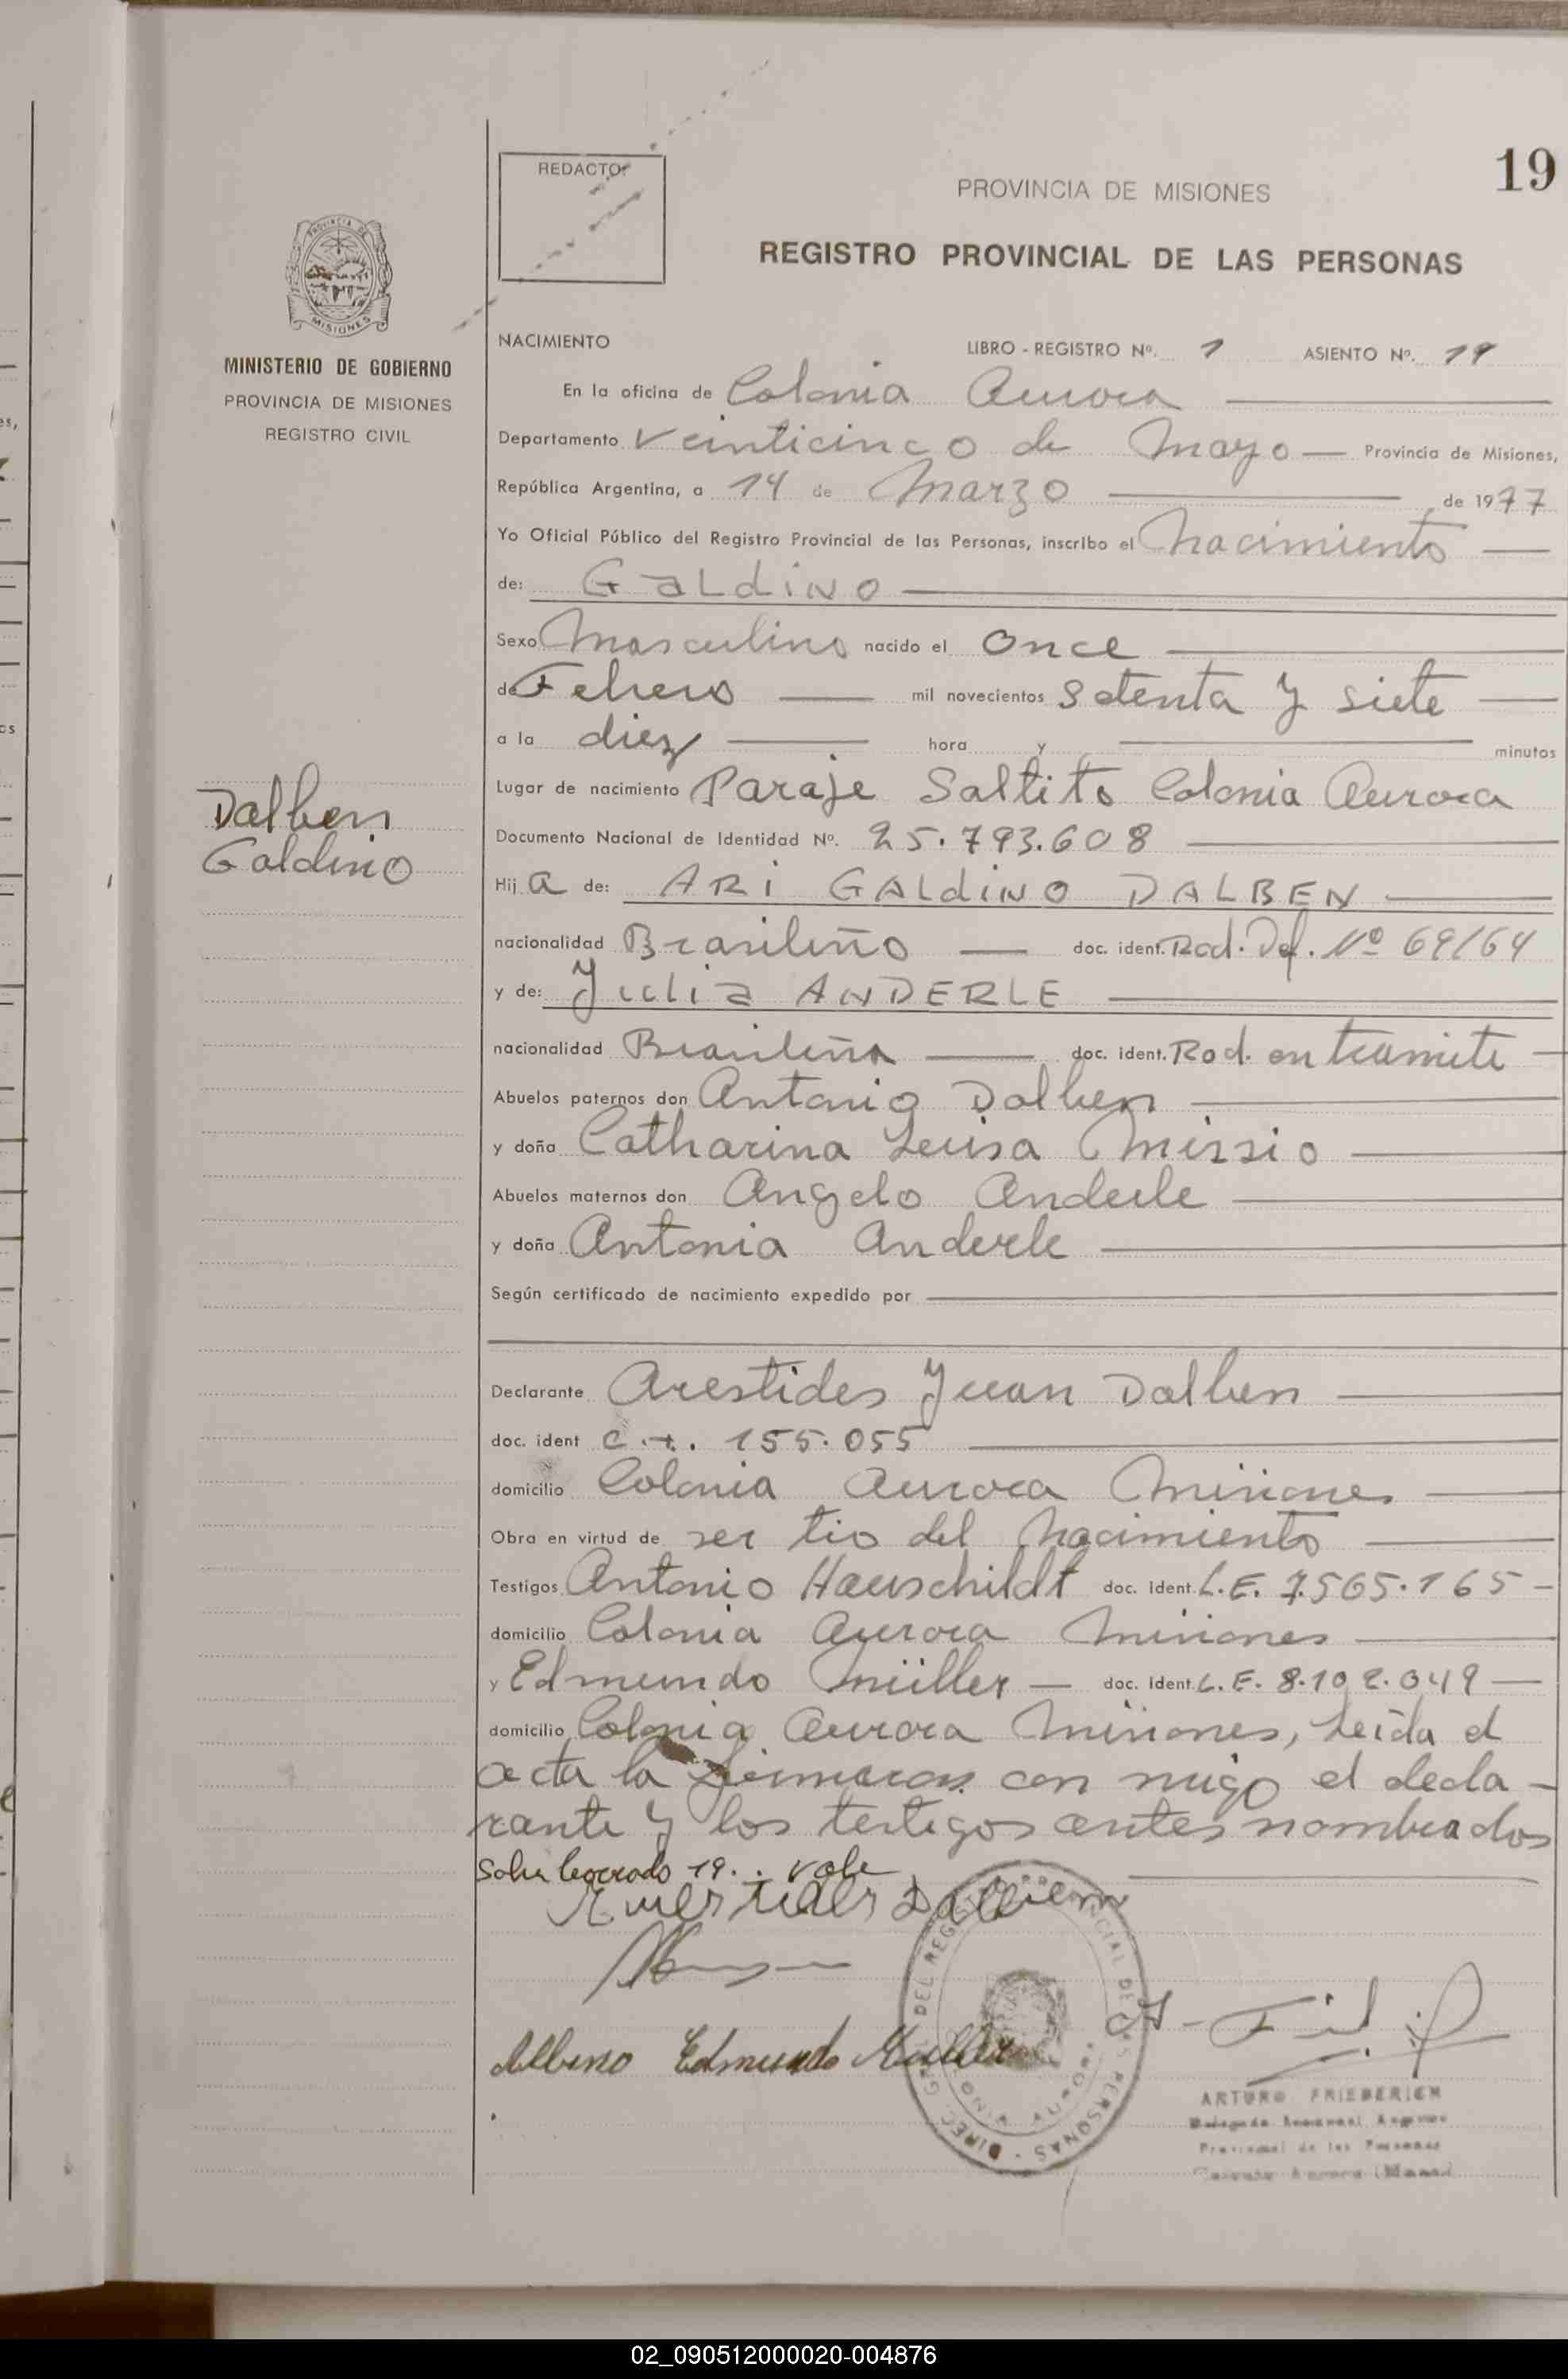 19
REDACTOR
PROVINCIA DE MISIONES
REGISTRO PROVINCIAL DE LAS PERSONAS
MISIONES
MINISTERIO DE GOBIERNO
PROVINCIA DE MISIONES
REGISTRO CIVIL
Dalben
Galdino
NACIMIENTO LIBRO - REGISTRO Nº. 1 ASIENTO Nº. 19
En la oficina de Colonia Aurora
Departamento Veinticinco de Mayo Provincia de Misiones,
República Argentina, a 14 de Marzo de 1977
Yo Oficial Público del Registro Provincial de las Personas, inscribo el nacimiento
de: GaLdiNo
Sexo Masculino nacido el once
de Febrero mil novecientos setenta y siete
a la diez hora y minutos
Lugar de nacimiento Paraje Saltito Colonia Aurora
Documento Nacional de Identidad Nº. 25.793.608
Hij a de: ARi GALdiNO DALBEN
nacionalidad Brasileño doc. ident. Rad. Def. Nº 69/64
y de: Julia ANDERLE
nacionalidad Brasileña doc. ident. Rad. en tramite
Abuelos paternos don Antonio Dalben
y doña Catharina Luisa Missio
Abuelos maternos don Angelo Anderle
y doña Antonia Anderle
Según certificado de nacimiento expedido por
Declarante Arestides Juan Dalben
doc. ident 155.055
domicilio Colonia Aurora Misiones
Obra en virtud de ser tio del nacimiento
Testigos Antonio Hauschildt doc. Ident. L.E. 7.565.165
domicilio Colonia Aurora Misiones
y Edmundo Müller doc. Ident. L.E. 8.102.049
domicilio Colonia Aurora Misiones, leída el
acta la firmaron con migo el decla-
rante y los testigos antes nombrados
Sobre borrado 19.. vale
Dalben
Albino Edmundo Müller
DIREC. GRAL. DEL REGISTRO PROVINCIAL DE LAS PERSONAS
ARTURO FRIEDERICH
Provincial de las Personas
02_090512000020-004876